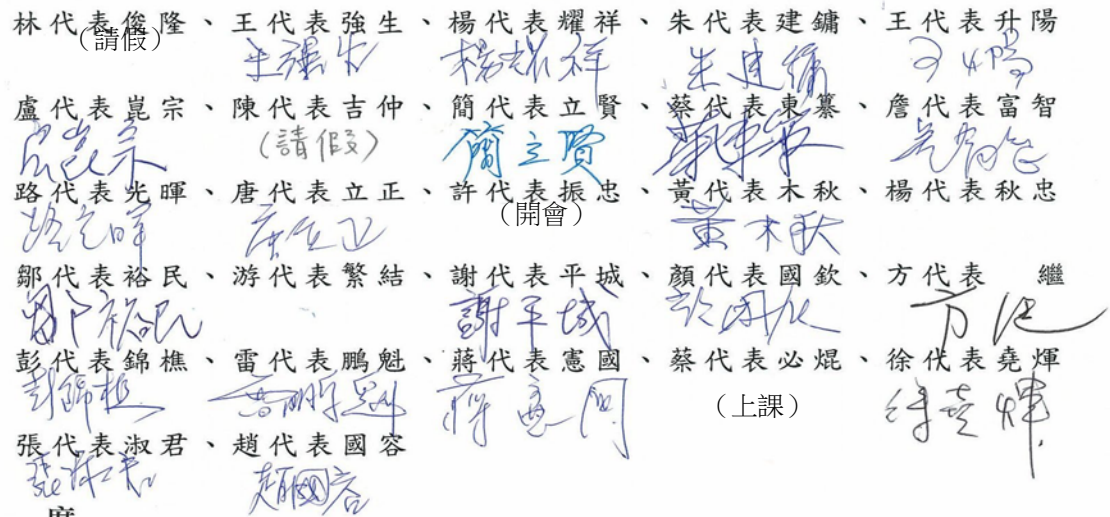 林代表俊隆、王代表強生、楊代表耀祥、朱代表建鏞、王代表升陽
（請假） 王強生 楊耀祥 朱建鏞
盧代表崑宗、陳代表吉仲、簡代表立賢、蔡代表東纂、詹代表富智
盧崑宗 （請假） 簡立賢 蔡東纂 詹富智
路代表光暉、唐代表立正、許代表振忠、黃代表木秋、楊代表秋忠
路光暉 唐立正 （開會） 黃木秋
鄒代表裕民、游代表繁結、謝代表平城、顏代表國欽、方代表 繼
鄒裕民 謝平城 顏國欽 方繼
彭代表錦樵、雷代表鵬魁、蔣代表憲國、蔡代表必焜、徐代表堯煇
彭錦樵 雷鵬魁 蔣憲國 （上課） 徐堯煇
張代表淑君、趙代表國容
張淑君 趙國容